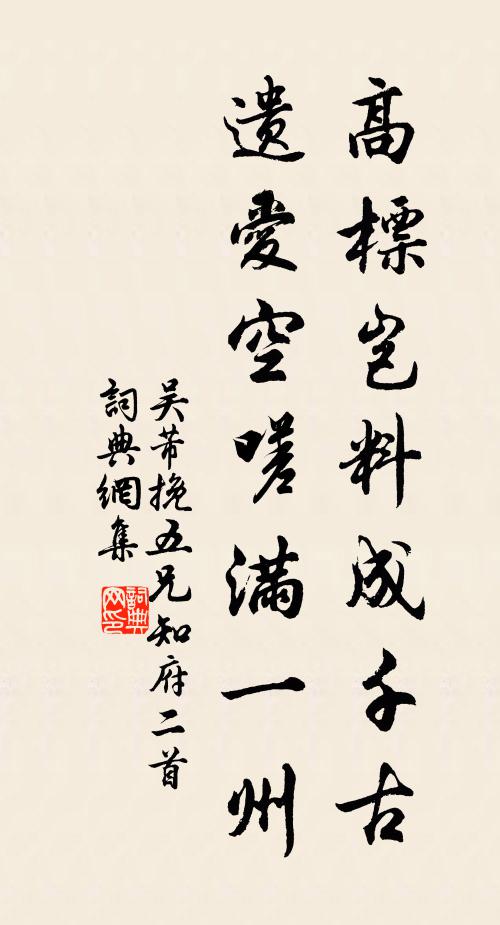 高標豈料成千古
遺愛空嗟滿一州
吴芾挽五兄知府二首
詞典網集
詞典
网印